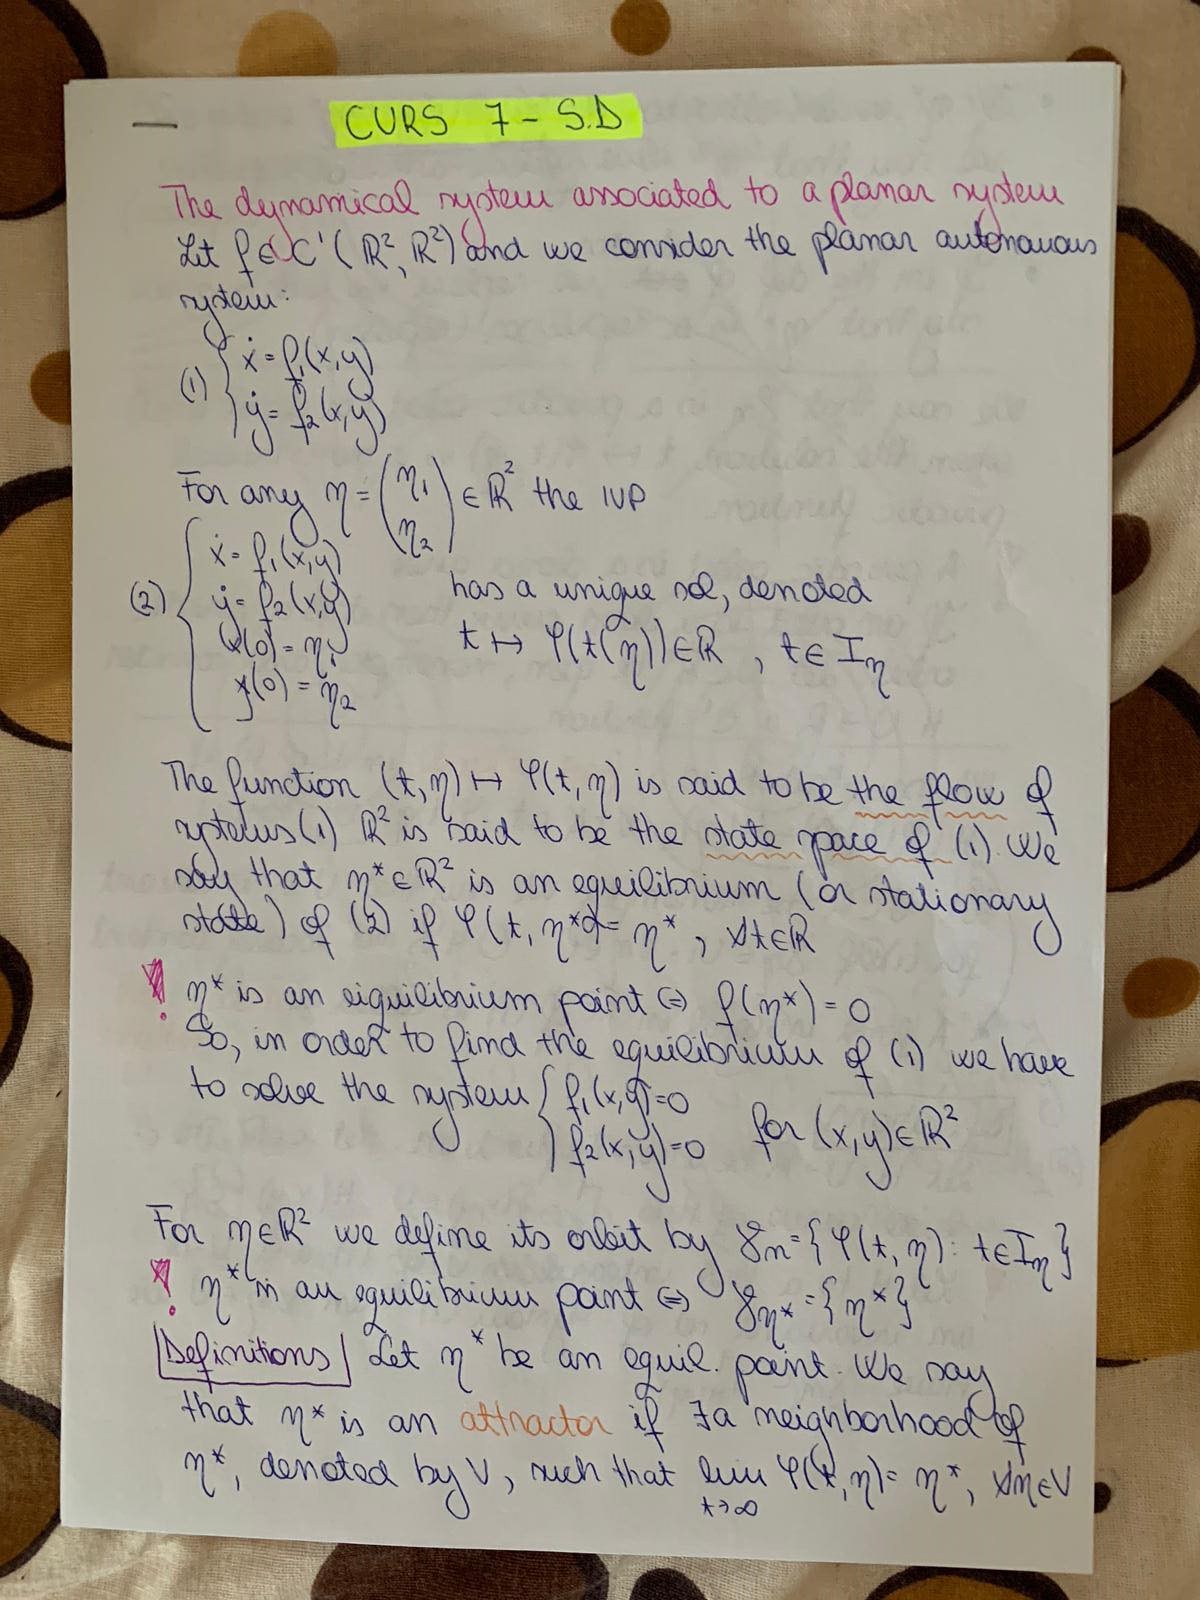 CURS 7 - S.D
The dynamical system associated to a planar system
Let f ∈ C¹(ℝ², ℝ²) and we consider the planar autonomous
system:
(1) { ẋ = f₁(x,y)
ẏ = f₂(x,y)
For any η = (η₁ η₂) ∈ ℝ² the IVP
(2) { ẋ = f₁(x,y)
ẏ = f₂(x,y) has a unique sol, denoted
x(0) = η₁ t ↦ φ(t(η)) ∈ ℝ , t ∈ I_η
y(0) = η₂
The function (t,η) ↦ φ(t,η) is said to be the flow of
systems (1) ℝ² is said to be the state space of (1). We
say that η* ∈ ℝ² is an equilibrium (or stationary
state) of (2) if φ(t, η*) = η*, ∀t∈ℝ
! η* is an eiguilibrium point ⇔ f(η*) = 0
So, in order to find the equilibrium of (1) we have
to solve the system { f₁(x,y)=0
f₂(x,y)=0 for (x,y)∈ℝ²
For η∈ℝ² we define its orbit by γ_η = {φ(t,η): t∈I_η}
! η* is an equilibrium point ⇔ γ_η* = {η*}
Definitions Let η* be an equil. point. We say
that η* is an attractor if ∃ a neighborhood of
η*, denoted by V, such that lim φ(t,η) = η*, ∀η∈V
t→∞